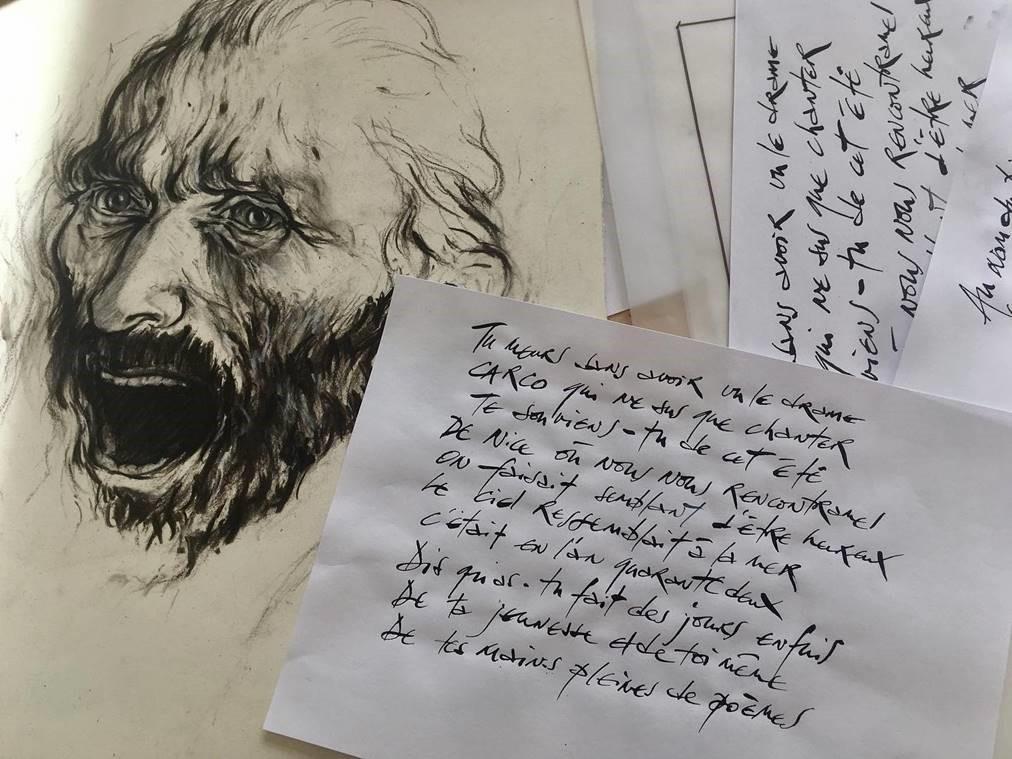 Tu MEURS sans avoir vu le drame
CARCO qui NE sus que chanter
Te souviens-tu de cet été
De Nice où nous nous RENCONTRAMES
ON faisait semblant d'être heureux
Le ciel Ressemblait à la mer
c'était en l'an quarante deux
Dis qu'as-tu fait des jours enfuis
De ta jeunesse et de toi même
De tes mains pleines de poèmes
sans avoir vu le drame
qui NE sus que chanter
viens-tu de cet été
nous nous RENCONTRAMES
d'être heureux
mer